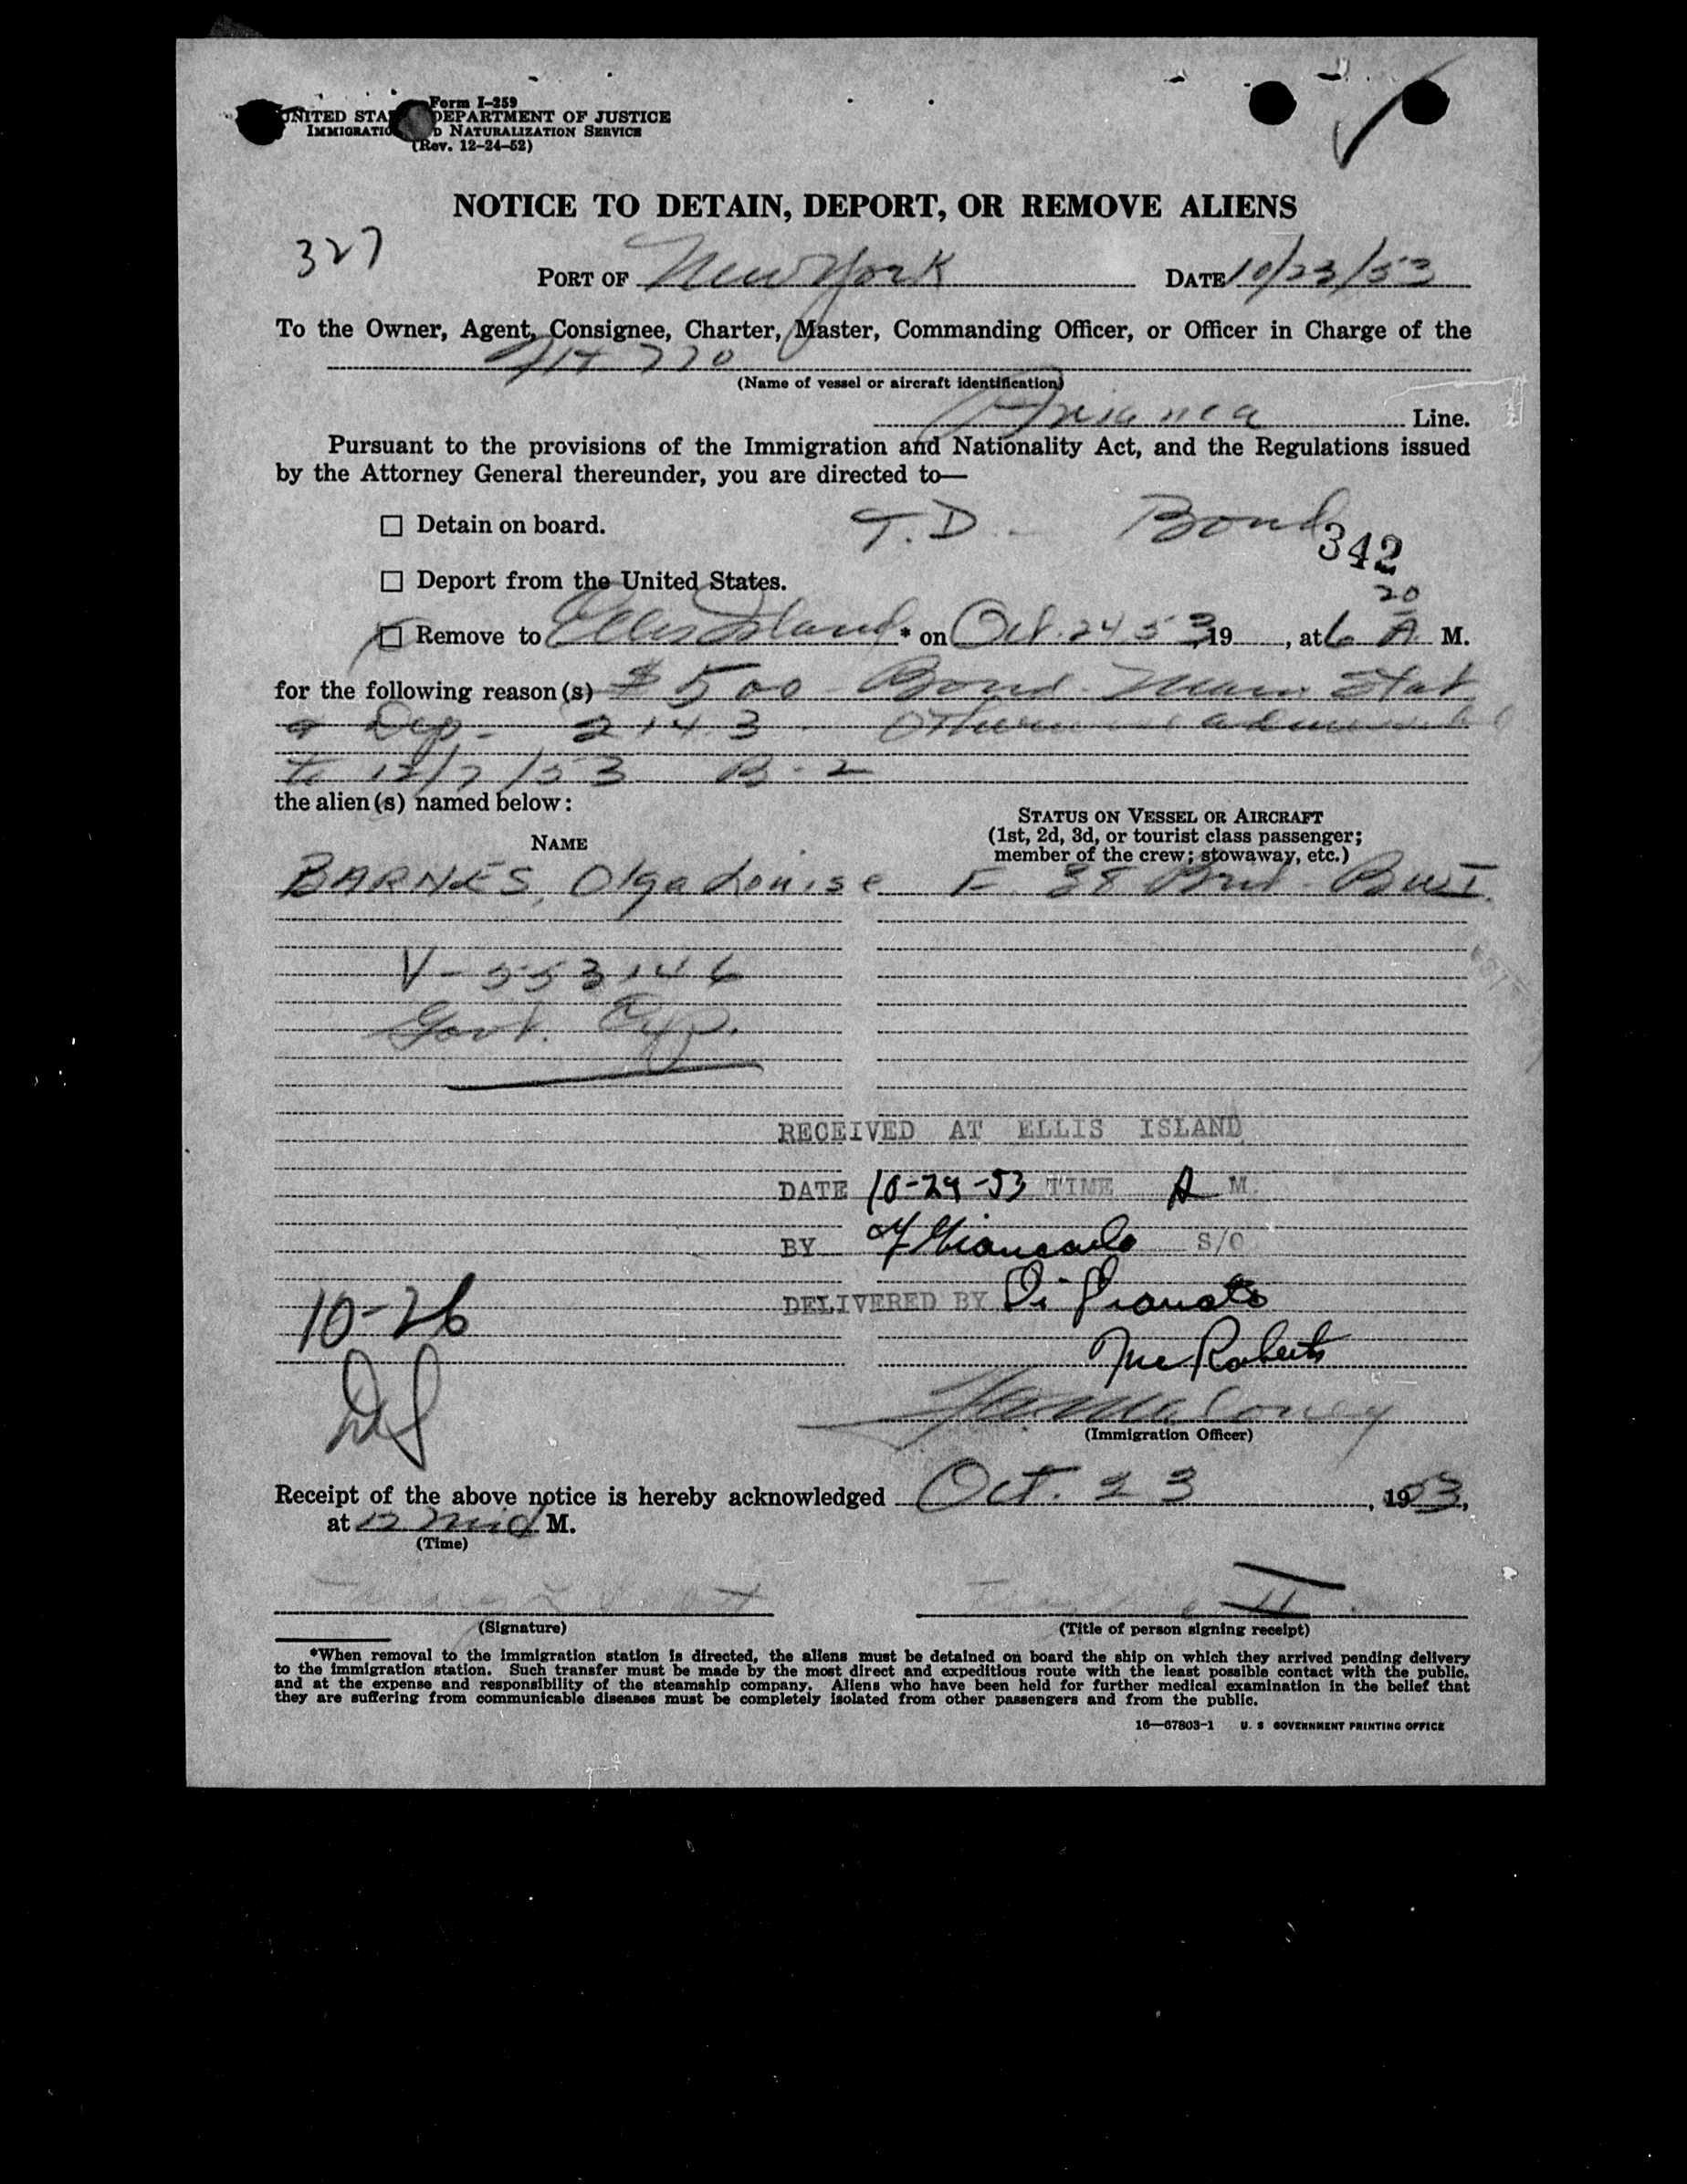 Form I-259
UNITED STA DEPARTMENT OF JUSTICE
IMMIGRATIO D NATURALIZATION SERVICE
(Rev. 12-24-52)
NOTICE TO DETAIN, DEPORT, OR REMOVE ALIENS
327
PORT OF New York DATE 10/23/53
To the Owner, Agent, Consignee, Charter, Master, Commanding Officer, or Officer in Charge of the
770
(Name of vessel or aircraft identification)
Avianca Line.
Pursuant to the provisions of the Immigration and Nationality Act, and the Regulations issued
by the Attorney General thereunder, you are directed to—
☐ Detain on board. T.D. Bond
342
☐ Deport from the United States.
☐ Remove to Ellis Island * on Oct. 24 53, 19 , at 6 20 A. M.
for the following reason(s) $500 Bond. Main. Stat
& Dep. 214.3. Otherwise admissible
to 12/7/53 B-2
the alien(s) named below:
NAME
STATUS ON VESSEL OR AIRCRAFT
(1st, 2d, 3d, or tourist class passenger;
member of the crew; stowaway, etc.)
BARNES, Olga Louise F 38 Brit - BWI.
V-553146
Govt. Exp.
RECEIVED AT ELLIS ISLAND
DATE 10-24-53 TIME A M.
BY S/O
DELIVERED BY
10-26
Mc Roberts
(Immigration Officer)
Receipt of the above notice is hereby acknowledged Oct. 23, 1953,
at 12 Mid M.
(Time)
(Signature)
(Title of person signing receipt)
*When removal to the immigration station is directed, the aliens must be detained on board the ship on which they arrived pending delivery
to the immigration station. Such transfer must be made by the most direct and expeditious route with the least possible contact with the public,
and at the expense and responsibility of the steamship company. Aliens who have been held for further medical examination in the belief that
they are suffering from communicable diseases must be completely isolated from other passengers and from the public.
16—67803-1 U. S GOVERNMENT PRINTING OFFICE